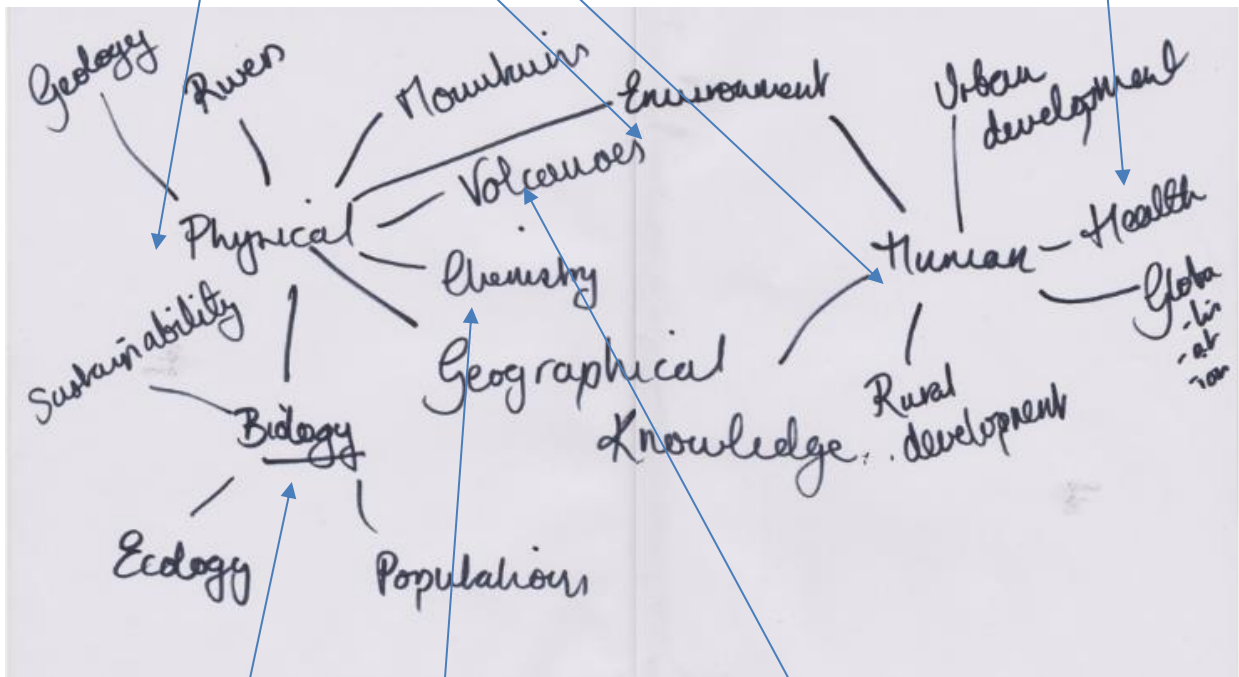 Geology
Rivers
Mountains
Environment
Urban
development
Volcanoes
Physical
Health
Human
Chemistry
Globa
-lis
-at
-ion
Sustainability
Geographical
Knowledge...
Rural
development
Biology
Ecology
Populations